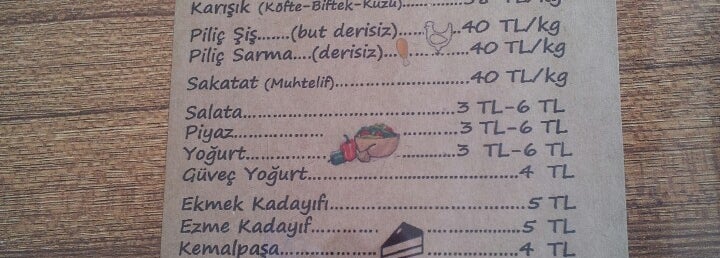 Karışık (Köfte-Biftek-Kuzu)........ TL/kg
Piliç Şiş......(but derisiz)......40 TL/kg
Piliç Sarma....(derisiz)....40 TL/kg
Sakatat (Muhtelif)........................40 TL/kg
Salata.......................................3 TL-6 TL
Piyaz........................................3 TL-6 TL
Yoğurt......................................3 TL-6 TL
Güveç Yoğurt.......................................4 TL
Ekmek Kadayıfı....................................5 TL
Ezme Kadayıf.......................................5 TL
Kemalpaşa..........................................4 TL